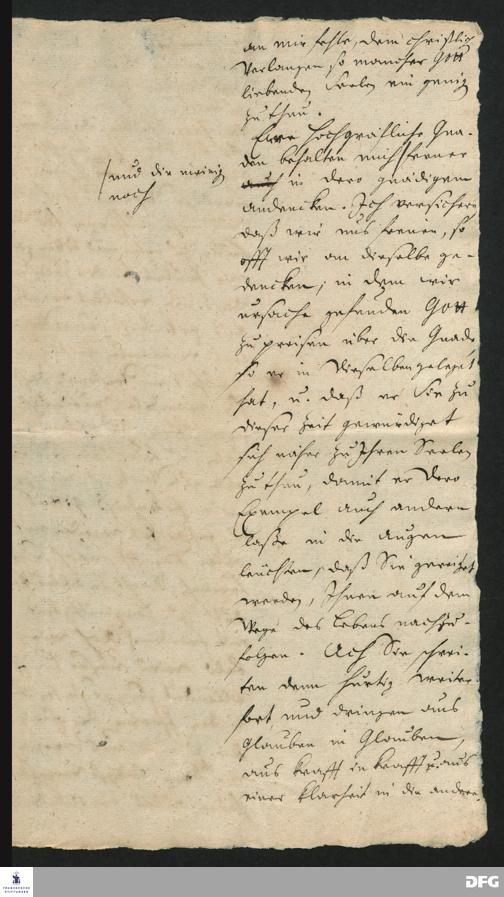 an mir fehle, dem christlich
Verlangen so mancher Gott
liebenden Seelen ein genüg
zu thun.
Eure Hochgräfliche Gna-
den behalten mich ferner
/und die meinig
noch
auch in dero gnädigem
andencken. Ich versichere
daß wir uns freuen, so
offt wir an dieselbe ge-
dencken, in dem wir
ursache gefunden Gott
zu preisen über die Gnade,
so er in Dieselben gelegt
hat, u. daß er Sie zu
dieser Zeit gewürdiget
sich näher zu Ihren Seelen
zu thun, damit er Dero
Exempel auch andern
laße in die Augen
leuchten, daß Sie gereitzet
werden, Ihnen auf dem
Wege des Lebens nachzu-
folgen. Ach Sie schrei-
ten denn hurtig weiter
fort und dringen aus
Glauben in Glauben,
aus Krafft in Krafft u. aus
einer Klarheit in die andere
FRANCKESCHE
STIFTUNGEN
DFG